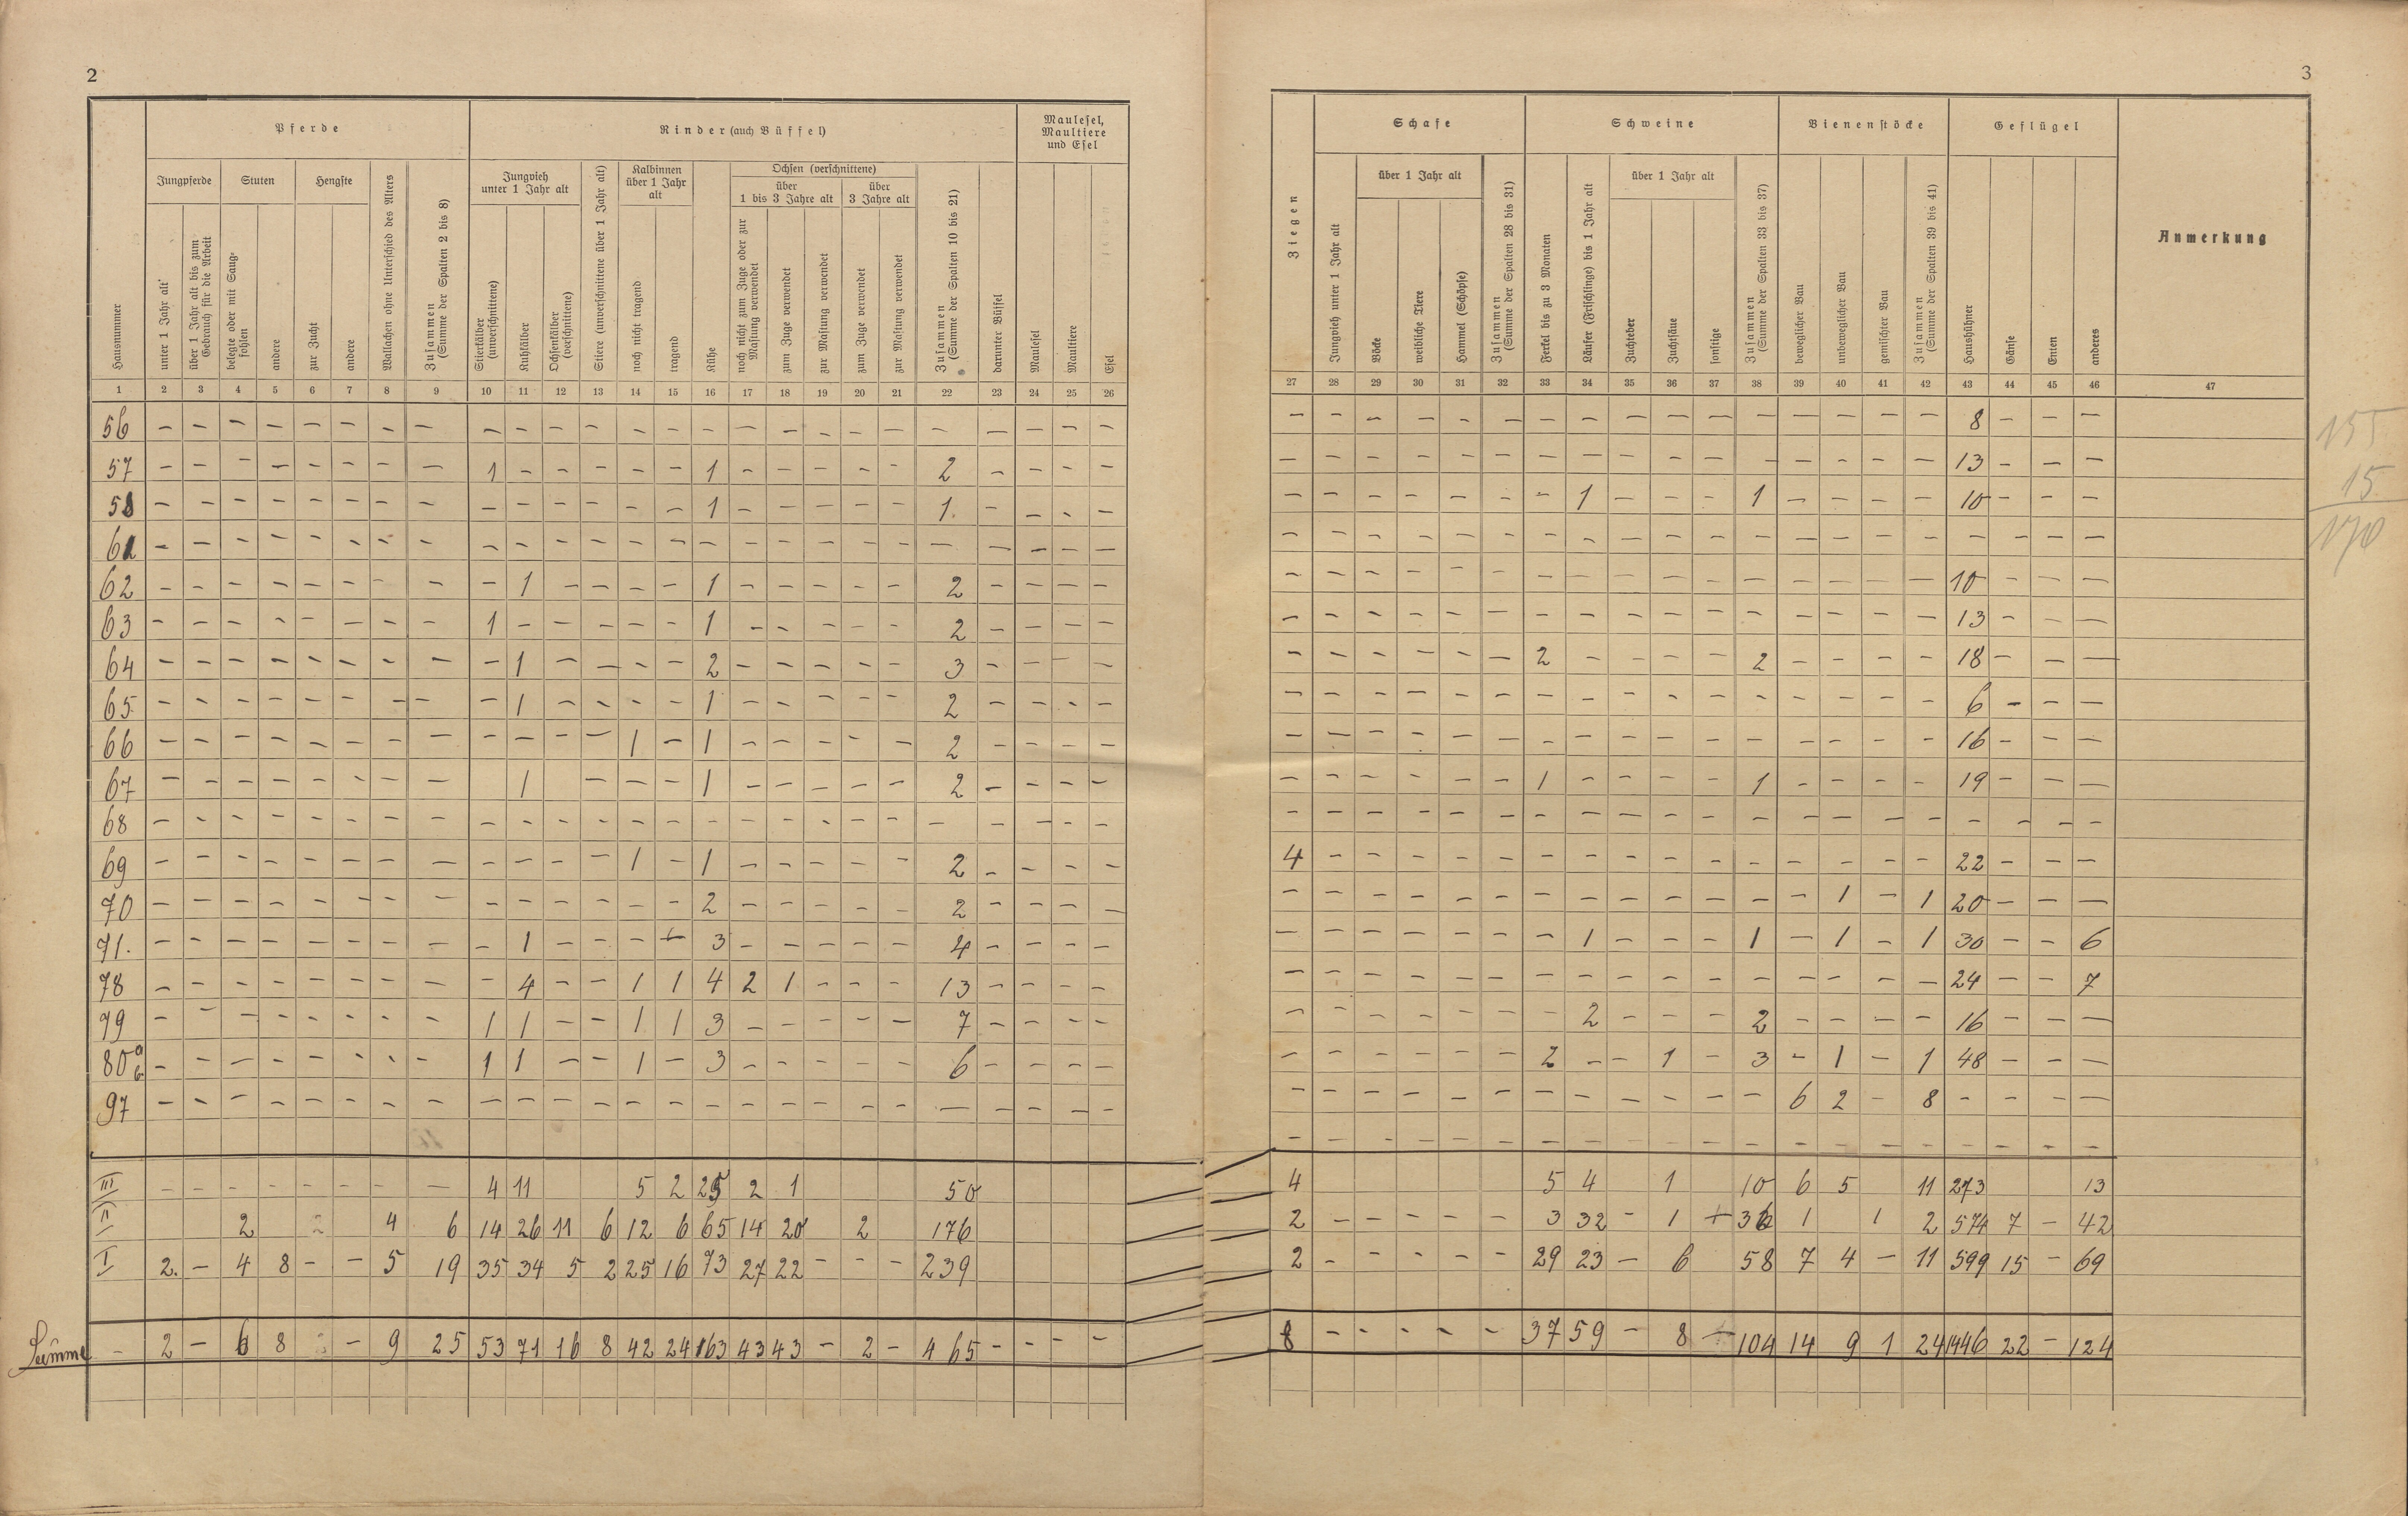 2
Pferde Rinder (auch Büffel) Maulesel, Maultiere und Esel
Jungpferde Stuten Hengste Jungvieh unter 1 Jahr alt Kalbinnen über 1 Jahr alt Ochsen (verschnittene)
über 1 bis 3 Jahre alt über 3 Jahre alt
Hausnummer
unter 1 Jahr alt
über 1 Jahr alt bis zum Gebrauch für die Arbeit
belegte oder mit Saugfohlen
andere
zur Zucht
andere
Wallachen ohne Unterschied des Alters
Zusammen (Summe der Spalten 2 bis 8)
Stierkälber (unverschnittene)
Kuhkälber
Ochsenkälber (verschnittene)
Stiere (unverschnittene über 1 Jahr alt)
noch nicht tragend
tragend
Kühe
noch nicht zum Zuge oder zur Mastung verwendet
zum Zuge verwendet
zur Mastung verwendet
zum Zuge verwendet
zur Mastung verwendet
Zusammen (Summe der Spalten 10 bis 21)
darunter Büffel
Maulesel
Maultiere
Esel
1 2 3 4 5 6 7 8 9 10 11 12 13 14 15 16 17 18 19 20 21 22 23 24 25 26
56 – – – – – – – – – – – – – – – – – – – – – – – – –
57 – – – – – – – – 1 – – – – – 1 – – – – – 2 – – – –
58 – – – – – – – – – – – – – – 1 – – – – – 1. – – – –
61 – – – – – – – – – – – – – – – – – – – – – – – – –
62 – – – – – – – – – 1 – – – – 1 – – – – – 2 – – – –
63 – – – – – – – – 1 – – – – – 1 – – – – – 2 – – – –
64 – – – – – – – – – 1 – – – – 2 – – – – – 3 – – – –
65 – – – – – – – – – 1 – – – – 1 – – – – – 2 – – – –
66 – – – – – – – – – – – – 1 – 1 – – – – – 2 – – – –
67 – – – – – – – – 1 – – – 1 – – – – – 2 – – – –
68 – – – – – – – – – – – – – – – – – – – – – – – – –
69 – – – – – – – – – – – – 1 – 1 – – – – – 2 – – – –
70 – – – – – – – – – – – – – – 2 – – – – – 2 – – – –
71. – – – – – – – – – 1 – – – – 3 – – – – – 4 – – – –
78 – – – – – – – – – 4 – – 1 1 4 2 1 – – – 13 – – – –
79 – – – – – – – – 1 1 – – 1 1 3 – – – – – 7 – – – –
80 a b – – – – – – – – 1 1 – – 1 – 3 – – – – – 6 – – – –
97 – – – – – – – – – – – – – – – – – – – – – – – – –
III – – – – – – – – 4 11 5 2 25 2 1 50
II 2 4 6 14 26 11 6 12 6 65 14 20 2 176
I 2. – 4 8 – – 5 19 35 34 5 2 25 16 73 27 22 – – – 239
Summe – 2 – 6 8 – 9 25 53 71 16 8 42 24 163 43 43 – 2 – 465 – – – –
3
Schafe Schweine Bienenstöcke Geflügel
über 1 Jahr alt über 1 Jahr alt
Ziegen
Jungvieh unter 1 Jahr alt
Böcke
weibliche Tiere
Hammel (Schöpse)
Zusammen (Summe der Spalten 28 bis 31)
Ferkel bis zu 3 Monaten
Läufer (Frischlinge) bis 1 Jahr alt
Zuchteber
Zuchtsäue
sonstige
Zusammen (Summe der Spalten 33 bis 37)
beweglicher Bau
unbeweglicher Bau
gemischter Bau
Zusammen (Summe der Spalten 39 bis 41)
Haushühner
Gänse
Enten
anderes
Anmerkung
27 28 29 30 31 32 33 34 35 36 37 38 39 40 41 42 43 44 45 46 47
– – – – – – – – – – – – – – – – 8 – – –
– – – – – – – – – – – – – – – – 13 – – –
– – – – – – – 1 – – – 1 – – – – 10 – – –
– – – – – – – – – – – – – – – – – – – –
– – – – – – – – – – – – – – – – 10 – – –
– – – – – – – – – – – – – – – – 13 – – –
– – – – – – 2 – – – – 2 – – – – 18 – – –
– – – – – – – – – – – – – – – – 6 – – –
– – – – – – – – – – – – – – – – 16 – – –
– – – – – – 1 – – – – 1 – – – – 19 – – –
– – – – – – – – – – – – – – – – – – – –
4 – – – – – – – – – – – – – – – 22 – – –
– – – – – – – – – – – – – 1 – 1 20 – – –
– – – – – – – 1 – – – 1 – 1 – 1 30 – – 6
– – – – – – – – – – – – – – – – 24 – – 7
– – – – – – – 2 – – – 2 – – – – 16 – – –
– – – – – – 2 – – 1 – 3 – 1 – 1 48 – – –
– – – – – – – – – – – – 6 2 – 8 – – – –
– – – – – – – – – – – – – – – – – – – –
4 5 4 1 10 6 5 11 273 13
2 – – – – – 3 32 – 1 – 36 1 1 2 574 7 – 42
2 – – – – – 29 23 – 6 58 7 4 – 11 599 15 – 69
8 – – – – – 37 59 – 8 – 104 14 9 1 24 1446 22 – 124
155
15
170